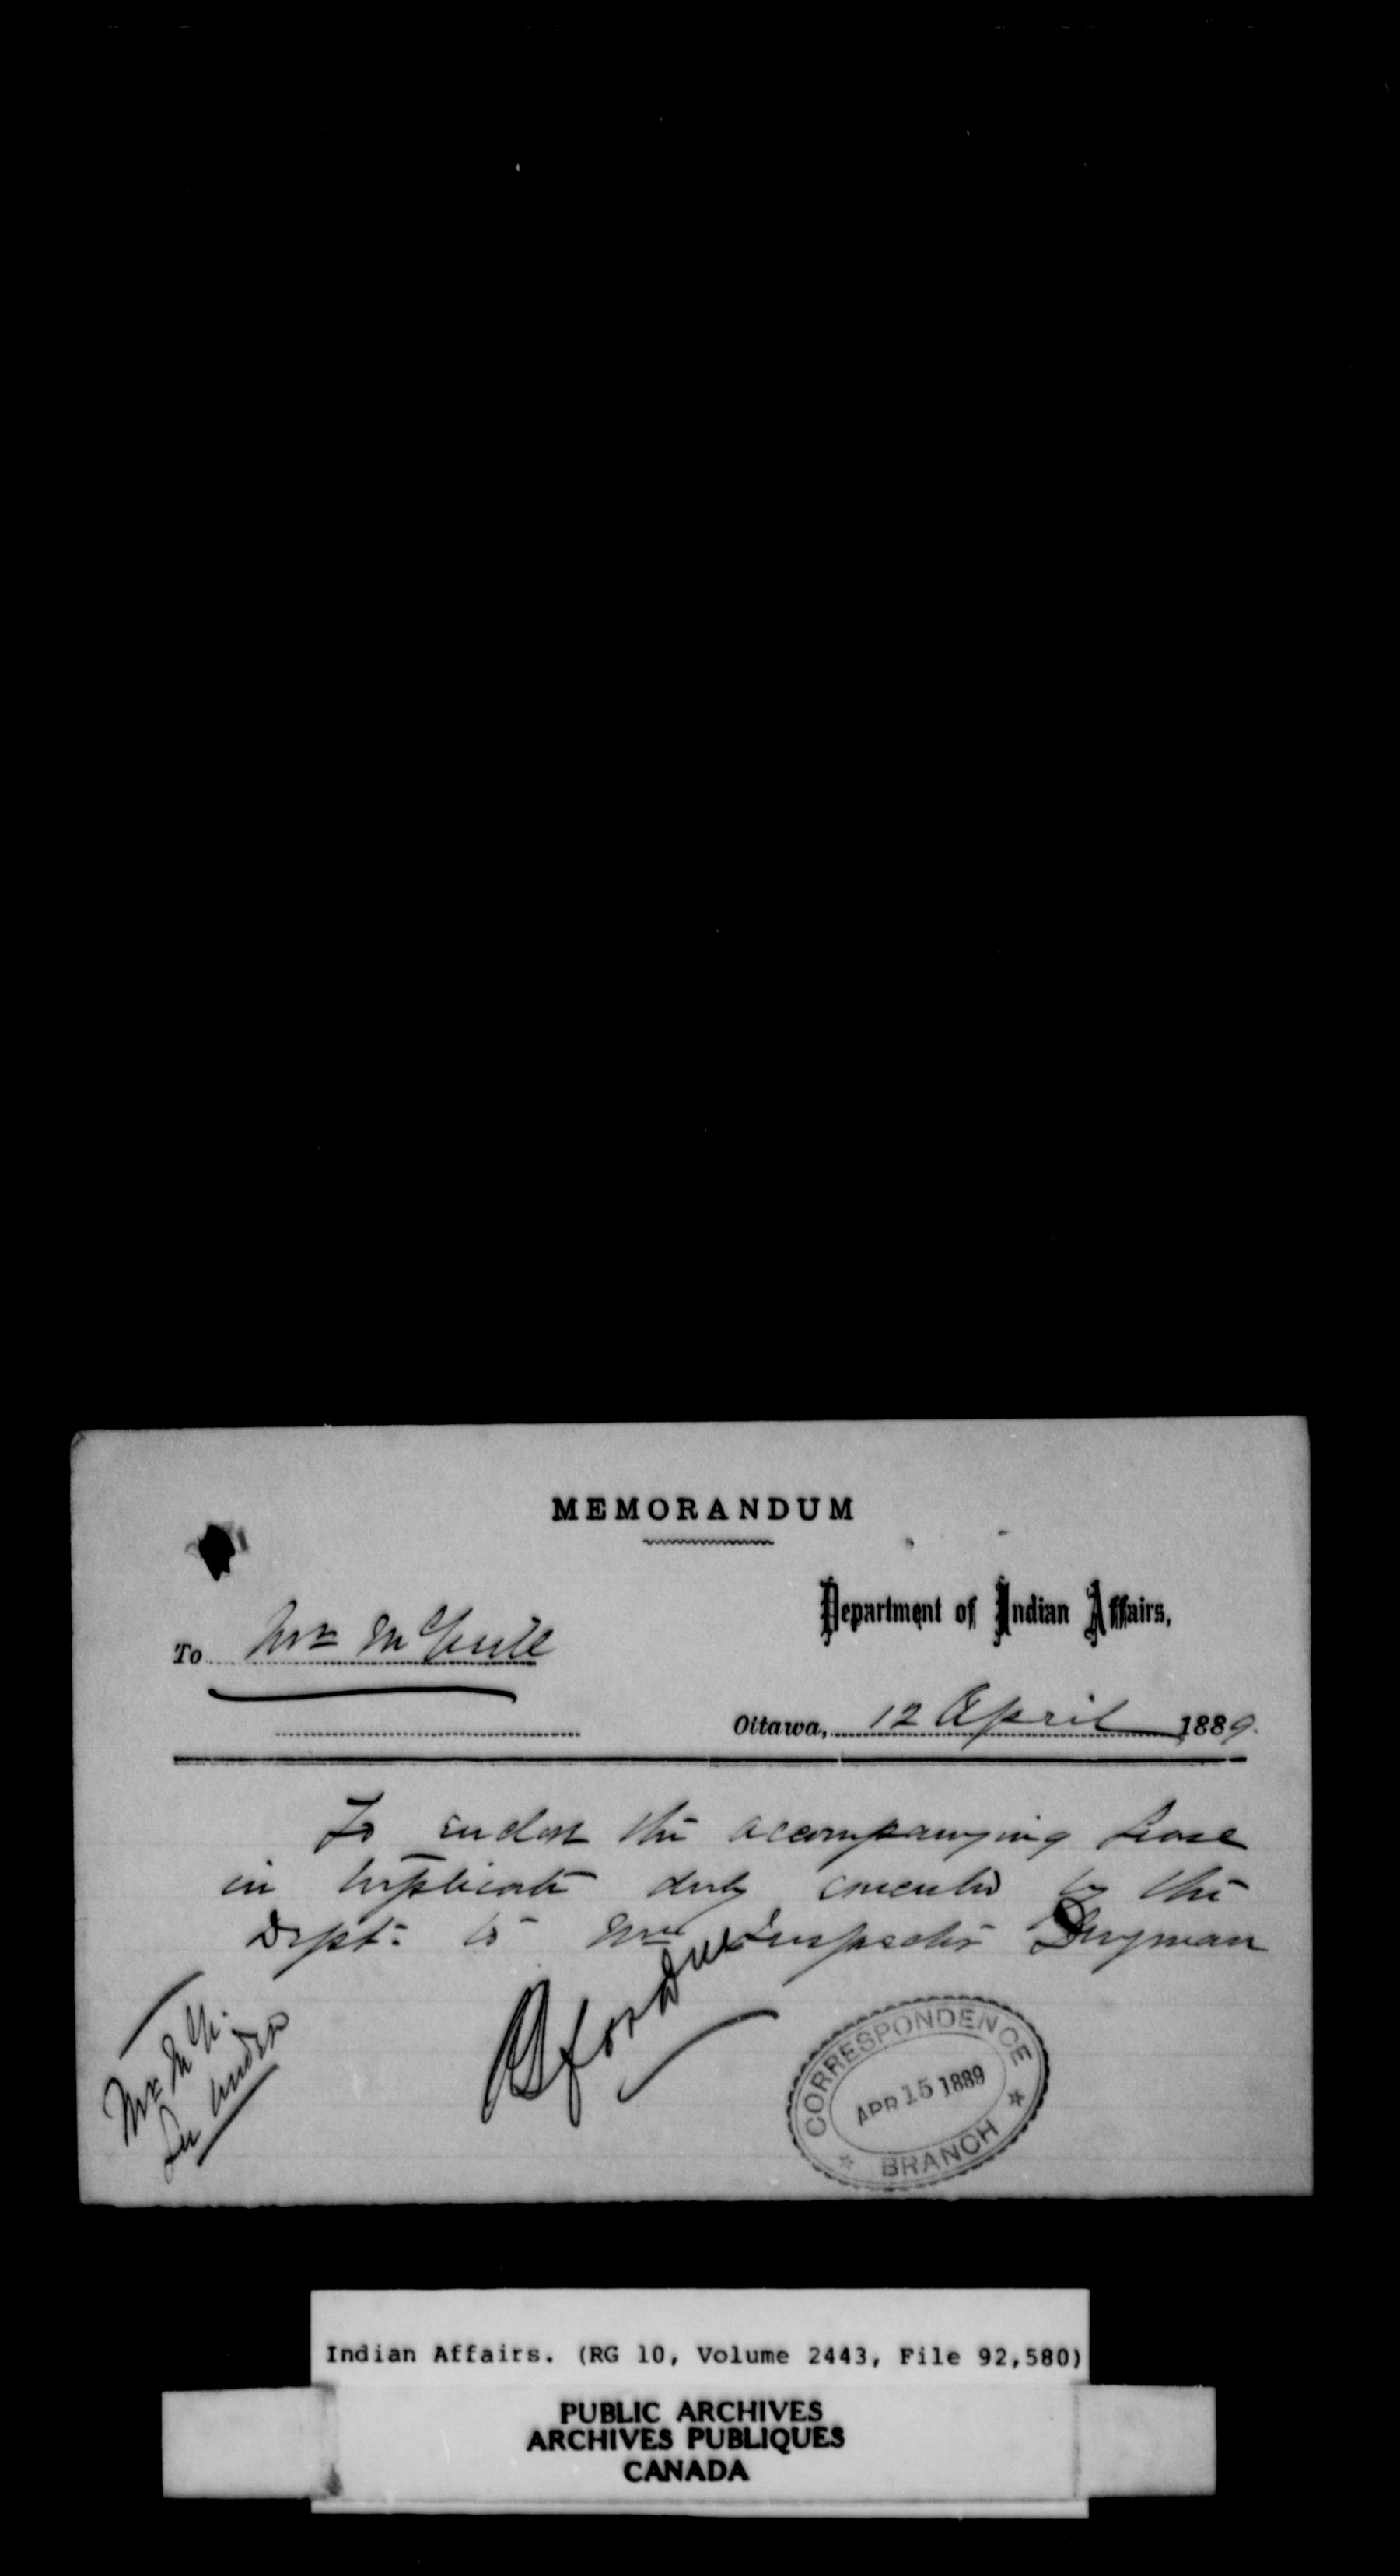 MEMORANDUM
Department of Indian Affairs,
To Mr. McGirr
Ottawa, 12 April 1889.
To enclose the accompanying lease
in triplicate duly executed by the
Dept. to Mr. Inspector Dingman
Mr. McG.
CORRESPONDENCE
APR 15 1889
BRANCH
Indian Affairs. (RG 10, Volume 2443, File 92,580)
PUBLIC ARCHIVES
ARCHIVES PUBLIQUES
CANADA